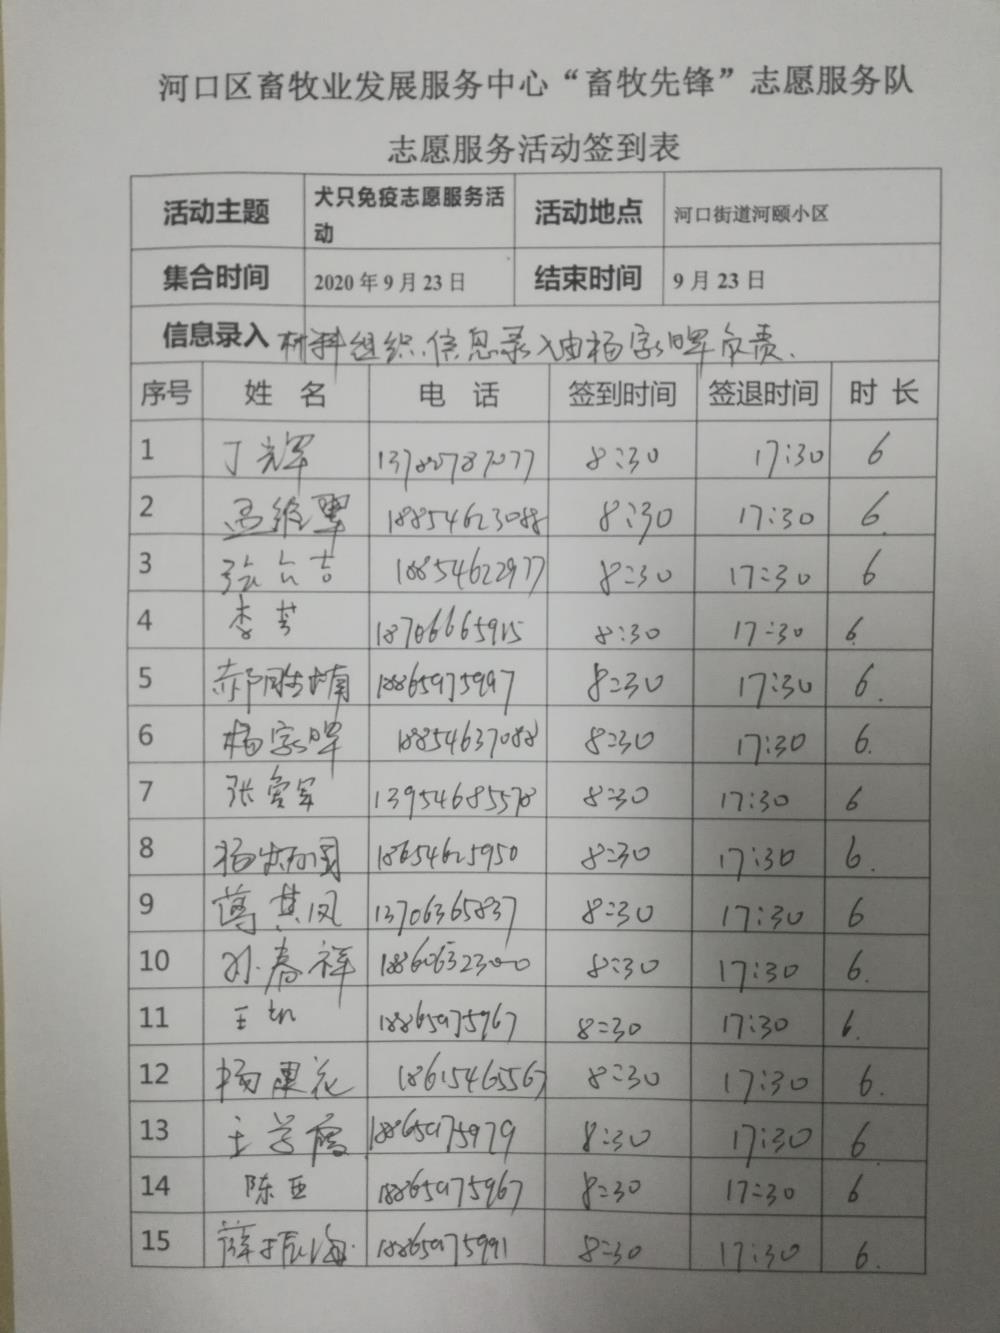 河口区畜牧业发展服务中心“畜牧先锋”志愿服务队
志愿服务活动签到表
活动主题 犬只免疫志愿服务活动 活动地点 河口街道河颐小区
集合时间 2020年9月23日 结束时间 9月23日
信息录入 材料组织、信息录入由杨家晖负责.
序号 姓名 电话 签到时间 签退时间 时长
1 丁光军 8:30 17:30 6
2 孟维翠 18854623088 8:30 17:30 6.
3 张立吉 18854622977 8:30 17:30 6
4 李芳 18706665915 8:30 17:30 6.
5 郝胜楠 18865975997 8:30 17:30 6.
6 杨家晖 18854637088 8:30 17:30 6.
7 张军 13954685578 8:30 17:30 6
8 杨国 18654625950 8:30 17:30 6.
9 其凤 13706365837 8:30 17:30 6
10 孙春祥 18860632300 8:30 17:30 6.
11 王凯 18865975967 8:30 17:30 6.
12 杨惠花 18615465567 8:30 17:30 6.
13 王学霞 18865975979 8:30 17:30 6
14 陈亚 18865975967 8:30 17:30 6
15 薛振海 18865975991 8:30 17:30 6.